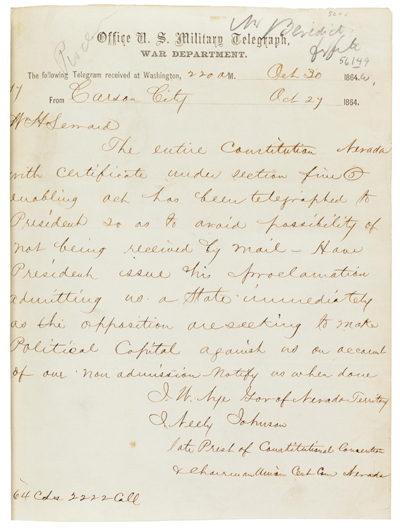 Office U. S. Military Telegraph,
WAR DEPARTMENT.
The following Telegram received at Washington, 220 A M. Oct 30 1864.
17 From Carson City Oct 27 1864.
Wm H Seward
The entire Constitution Nevada
with certificate under section five
enabling act has been telegraphed to
President so as to avoid possibility of
not being received by mail – Have
President issue his proclamation
admitting us a State immediately
as the opposition are seeking to make
Political Capital against us on account
of our non admission Notify us when done
J. W. Nye Gov of Nevada Territory
J Neely Johnson
late Prest of Constitutional Convention
& Chairman Union Cent Com Nevada
56149